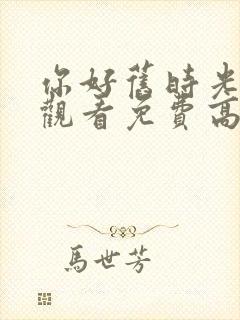 你好舊時光
觀看免費高
馬世芳